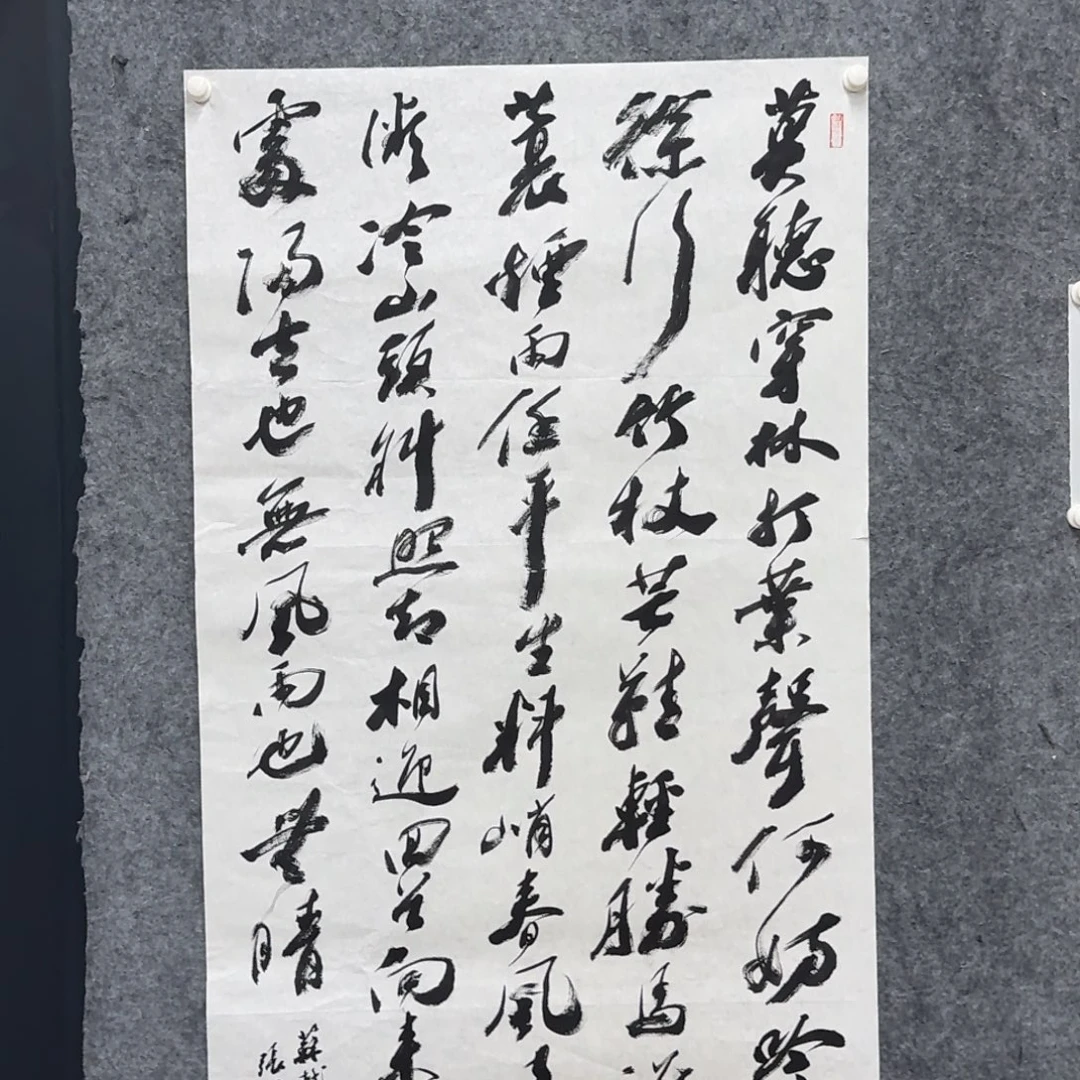 莫聽穿林打葉聲何妨吟
徐行竹杖芒鞋輕勝馬
蓑煙雨任平生料峭春風
微冷山頭斜照却相迎回首向来
處歸去也無風雨也無晴
蘇軾
張